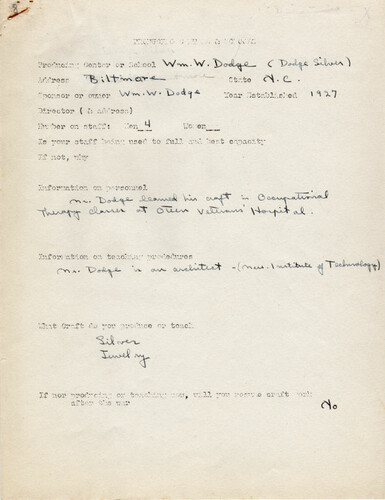 Producing Center or School Wm. W. Dodge (Dodge Silver)
Address Biltmore State N.C.
Sponsor or owner Wm. W. Dodge Year Established 1927
Director (& Address)
Number on staff: Men 4 Women
Is your staff being used to full and best capacity
If not, why
Information on personnel
Mr. Dodge learned his craft in Occupational
Therapy classes at Oteen Veterans' Hospital.
Information on teaching procedures
Mr. Dodge is an architect - (Mass. Institute of Technology)
What Craft do you produce or teach
Silver
Jewelry
If not producing or teaching now, will you resume craft work
after the war No